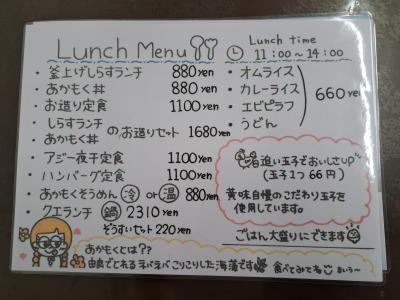 Lunch Menu
Lunch time
11:00~14:00
・釜上げしらすランチ 880yen
・あかもく丼 880yen
・お造り定食 1100yen
・しらすランチ
あかもく丼
のお造りセット 1680yen
・アジ一夜干定食 1100yen
・ハンバーグ定食 1100yen
・あかもくそうめん 冷 or 温 880yen
・クエランチ 鍋 2310yen
ぞうすいセット 220yen
・オムライス
・カレーライス
・エビピラフ
・うどん
660yen
追い玉子でおいしさup
(玉子1つ66円)
黄味自慢のこだわり玉子を
使用しています。
ごはん大盛りにできます
あかもくとは??
由良でとれるネバネバこりこりした海藻です 食べてみてね まいう~